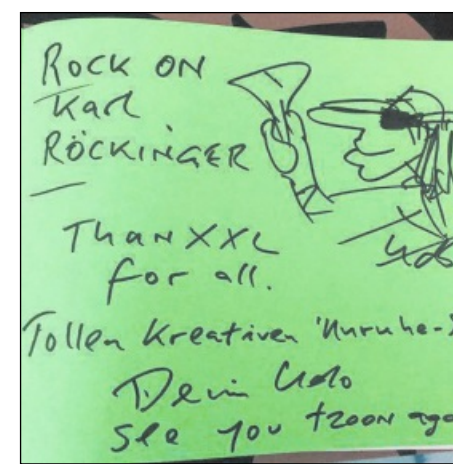 ROCK ON
Karl
RÖCKINGER
ThanXXL
for all.
Tollen Kreativen 'Unruhe-
Dein Udo
See you tzoon ago